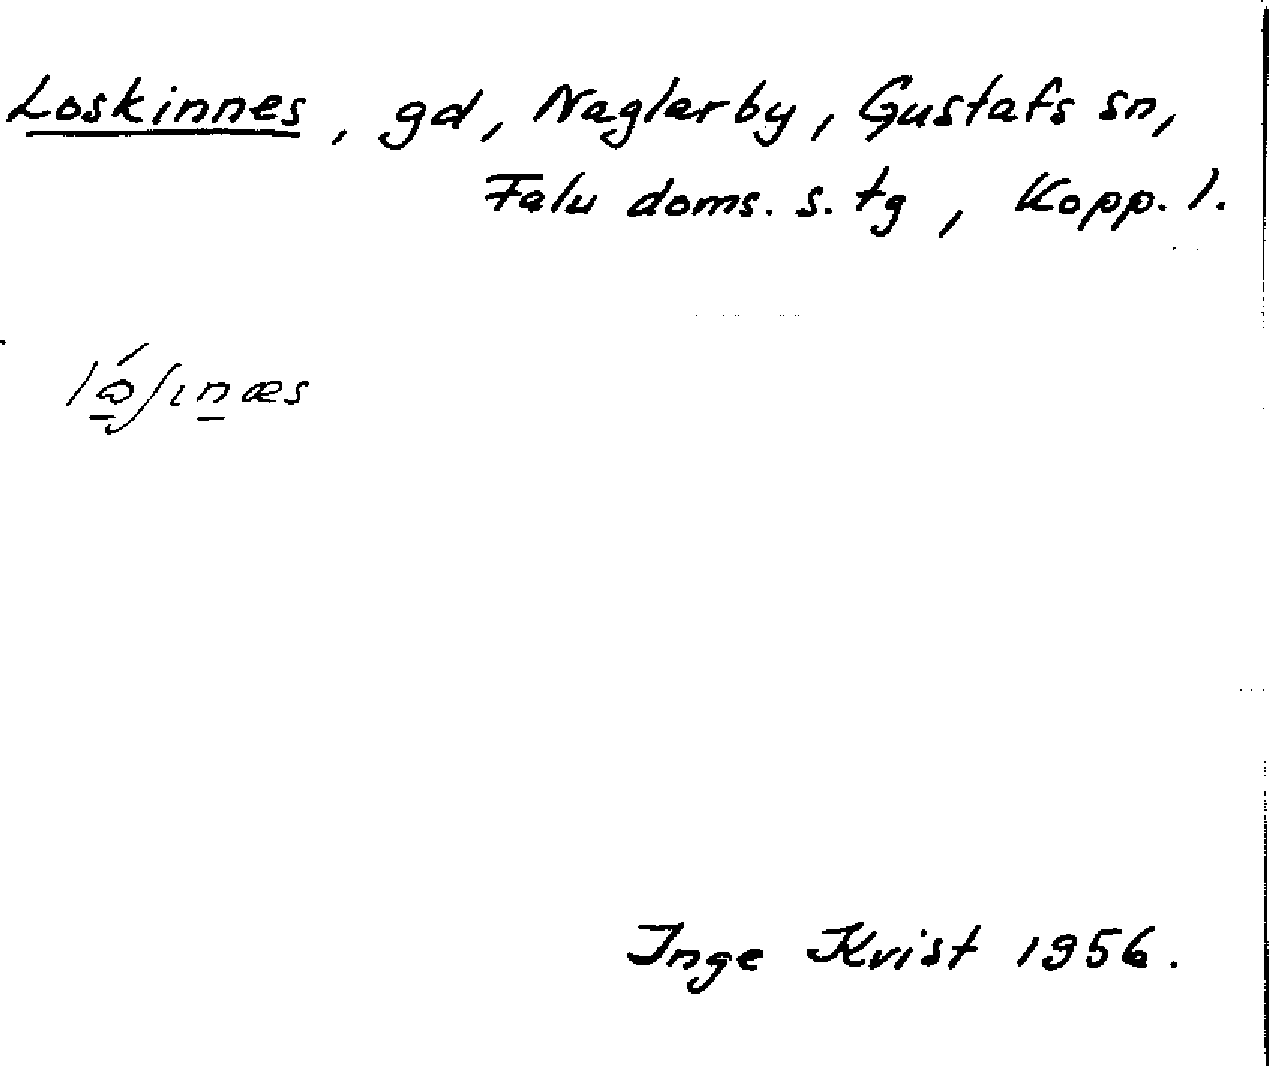 Loskinnes, gd, Naglarby, Gustafs sn,
Falu doms. s. tg, Kopp. l.
Inge Kvist 1956.